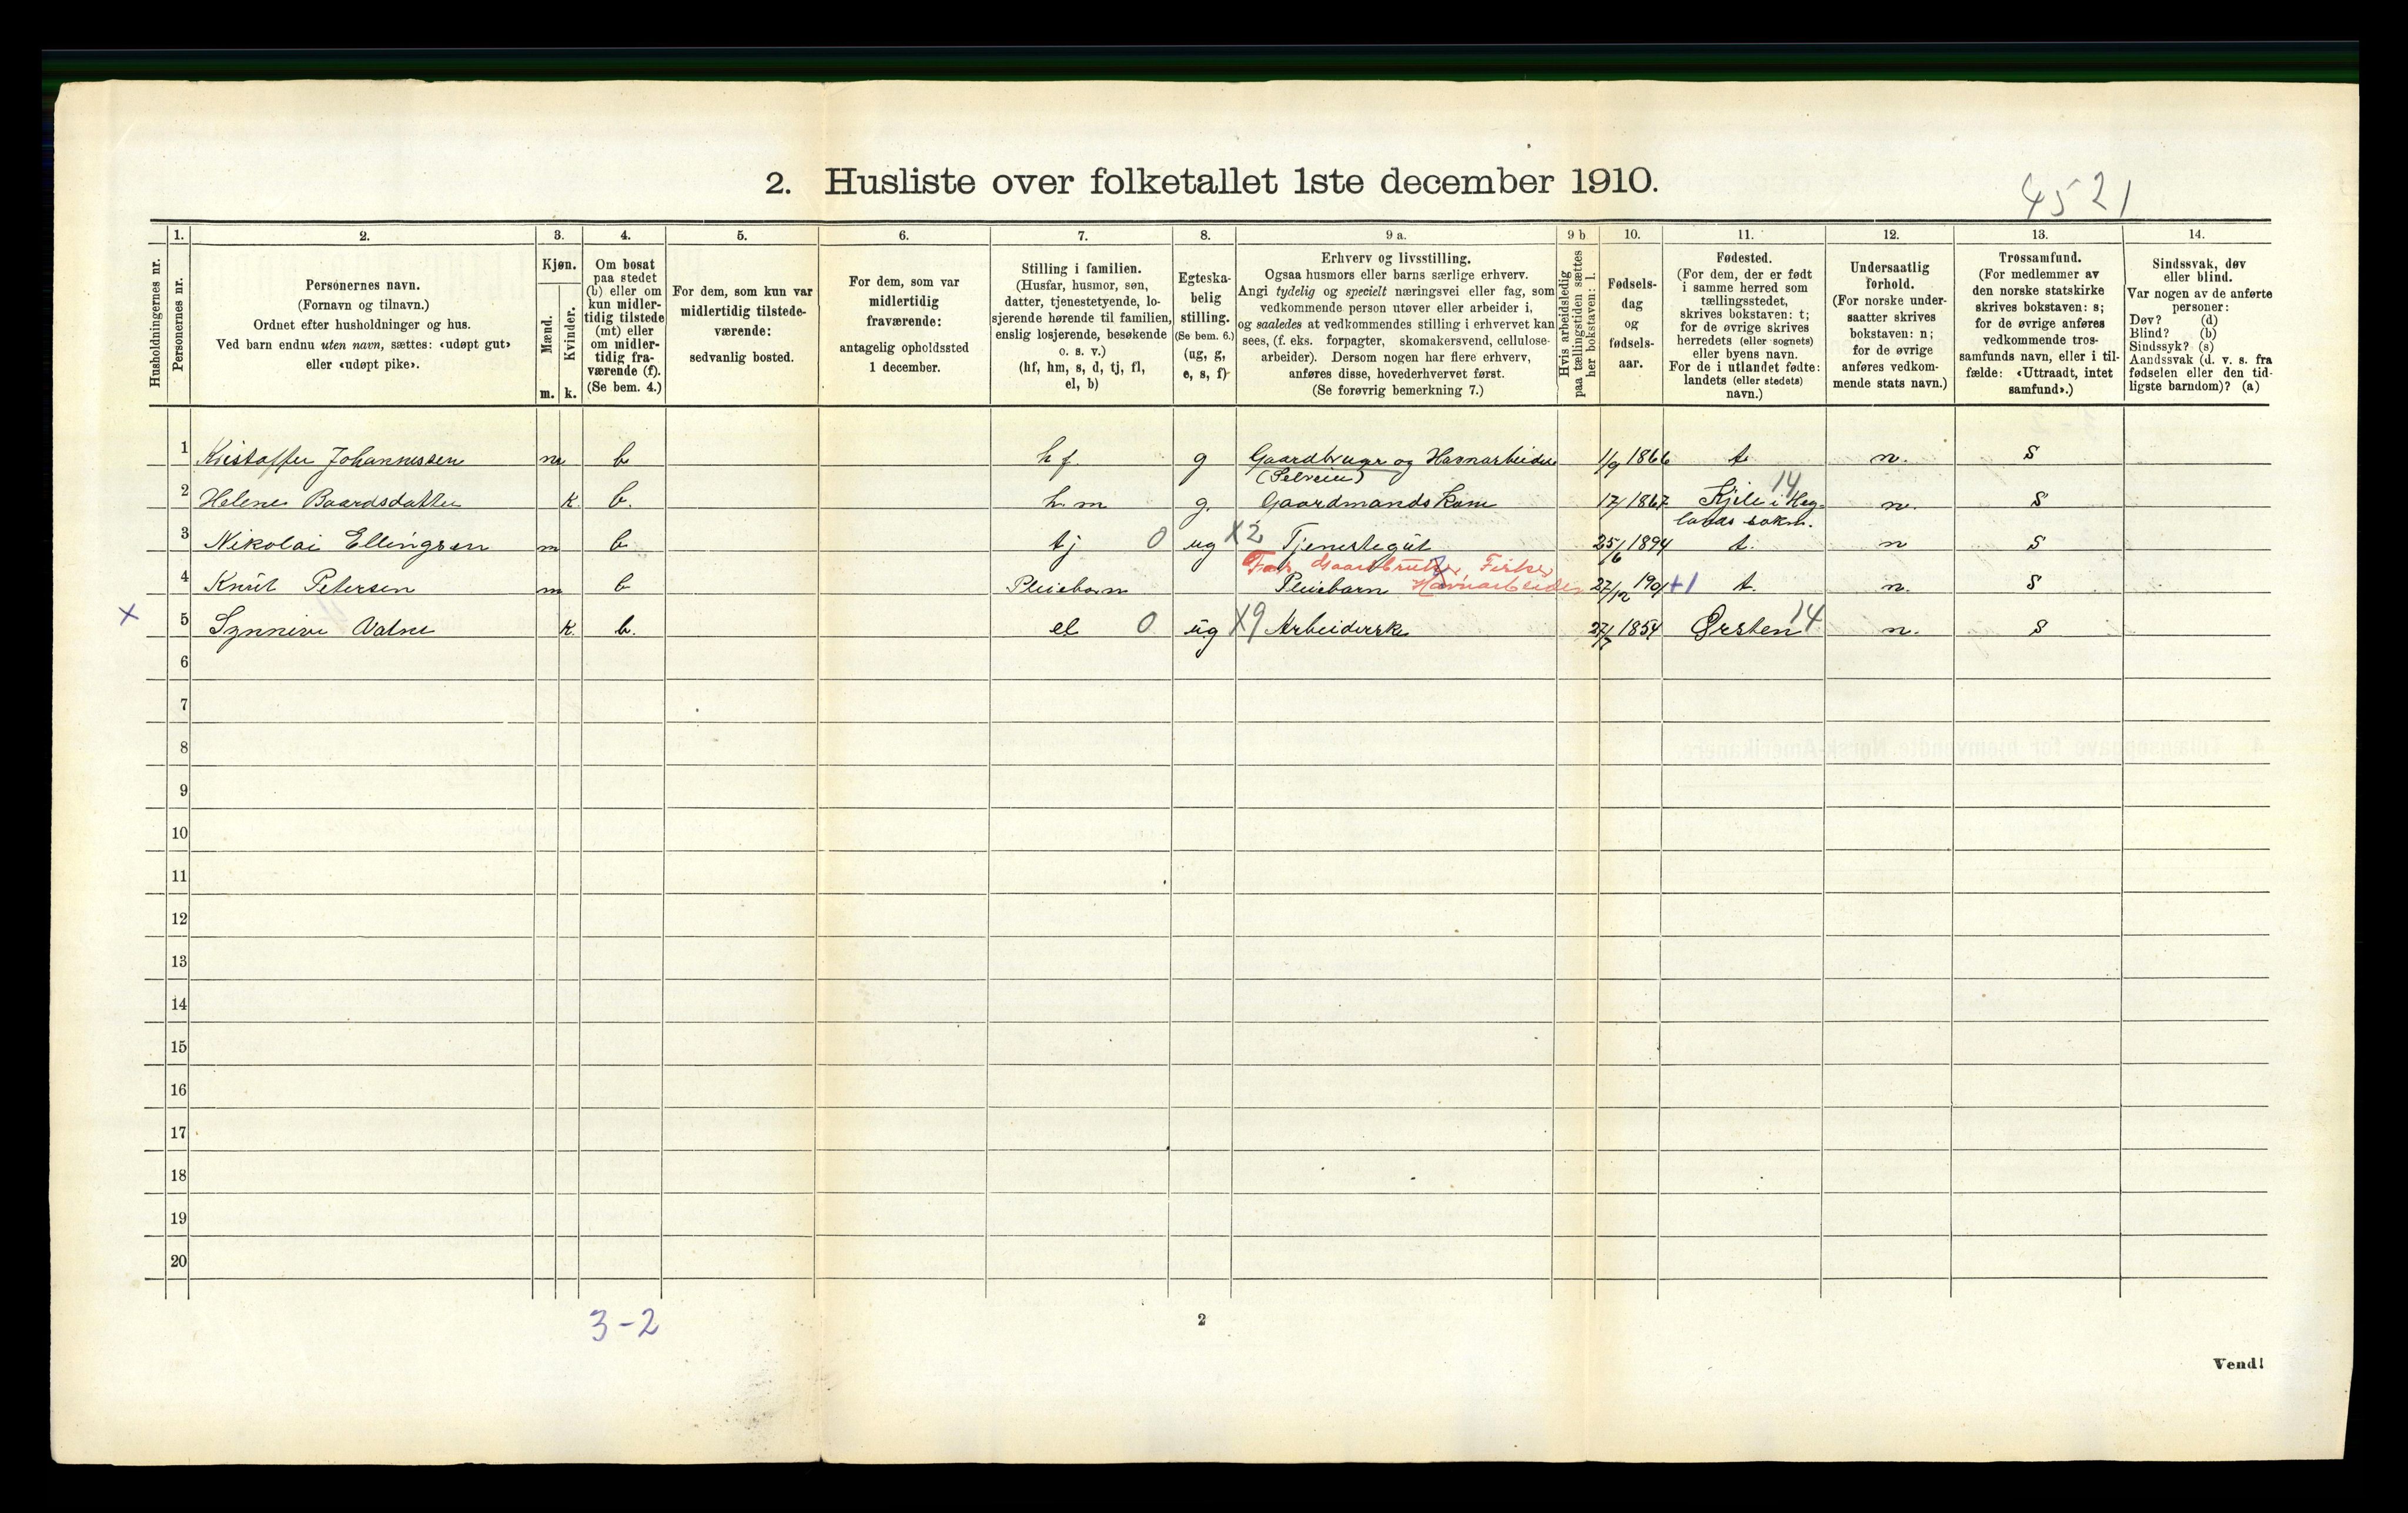 2. Husliste over folketallet 1ste december 1910.
4521
Husholdningernes nr.
1.
Personernes nr.
2.
Personernes navn.
(Fornavn og tilnavn.)
Ordnet efter husholdninger og hus.
Ved barn endnu uten navn, sættes: «udøpt gut»
eller «udøpt pike».
3.
Kjøn.
Mænd.
Kvinder.
m. k.
4.
Om bosat
paa stedet
(b) eller om
kun midler-
tidig tilstede
(mt) eller
om midler-
tidig fra-
værende (f).
(Se bem. 4.)
5.
For dem, som kun var
midlertidig tilstede-
værende:
sedvanlig bosted.
6.
For dem, som var
midlertidig
fraværende:
antagelig opholdssted
1 december.
7.
Stilling i familien.
(Husfar, husmor, søn,
datter, tjenestetyende, lo-
sjerende hørende til familien,
enslig losjerende, besøkende
o. s. v.)
(hf, hm, s, d, tj, fl,
el, b)
8.
Egteska-
belig
stilling.
(Se bem. 6.)
(ug, g,
e, s, f)
9 a.
Erhverv og livsstilling.
Ogsaa husmors eller barns særlige erhverv.
Angi tydelig og specielt næringsvei eller fag, som
vedkommende person utøver eller arbeider i,
og saaledes at vedkommendes stilling i erhvervet kan
sees, (f. eks. forpagter, skomakersvend, cellulose-
arbeider). Dersom nogen har flere erhverv,
anføres disse, hovederhvervet først.
(Se forøvrig bemerkning 7.)
9 b
Hvis arbeidsledig
paa tællingstiden sættes
her bokstaven: l.
10.
Fødsels-
dag
og
fødsels-
aar.
11.
Fødested.
(For dem, der er født
i samme herred som
tællingsstedet,
skrives bokstaven: t;
for de øvrige skrives
herredets (eller sognets)
eller byens navn.
For de i utlandet fødte:
landets (eller stedets)
navn.)
12.
Undersaatlig
forhold.
(For norske under-
saatter skrives
bokstaven: n;
for de øvrige
anføres vedkom-
mende stats navn.)
13.
Trossamfund.
(For medlemmer av
den norske statskirke
skrives bokstaven: s;
for de øvrige anføres
vedkommende tros-
samfunds navn, eller i til-
fælde: «Uttraadt, intet
samfund».)
14.
Sindssvak, døv
eller blind.
Var nogen av de anførte
personer:
Døv? (d)
Blind? (b)
Sindssyk? (s)
Aandssvak (d. v. s. fra
fødselen eller den tid-
ligste barndom)? (a)
1 Kristoffer Johannessen m b hf g Gaardbruger og Havnarbeider 1/9 1866 t n. s
(Selveier)
2 Helene Baardsdatter k b. hm g. Gaardmandskone 1867 14 n. s
3 Nikolai Ellingsen m b tj 0 ug X2 Tjenestegut 25/6 1894 t. n s
Far Gaardbruker, Fisker,
Havnarbeider
4 Knut Petersen m b Pleiebarn Pleiebarn 27/12 1901 +1 t. n. s
X 5 Synneve Vatne k. b. el 0 ug X9 Arbeiderske 27/7 1854 Ørsten 14 n. s
6
7
8
9
10
11
12
13
14
15
16
17
18
19
20
3-2
2
Vend!